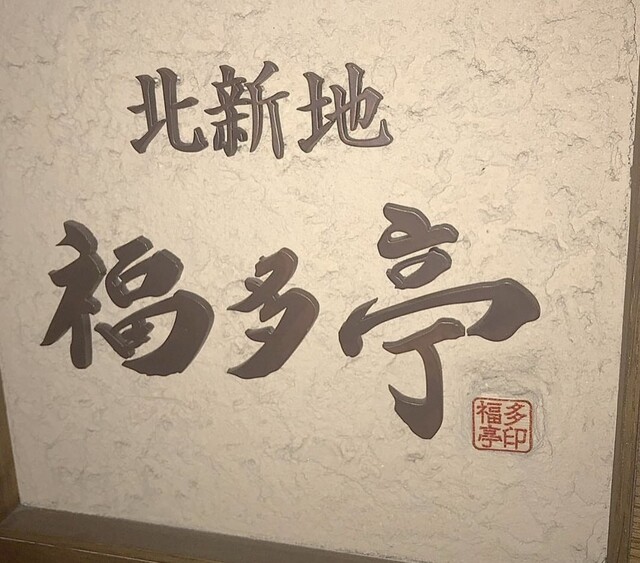 北新地
福多亭
福多亭印